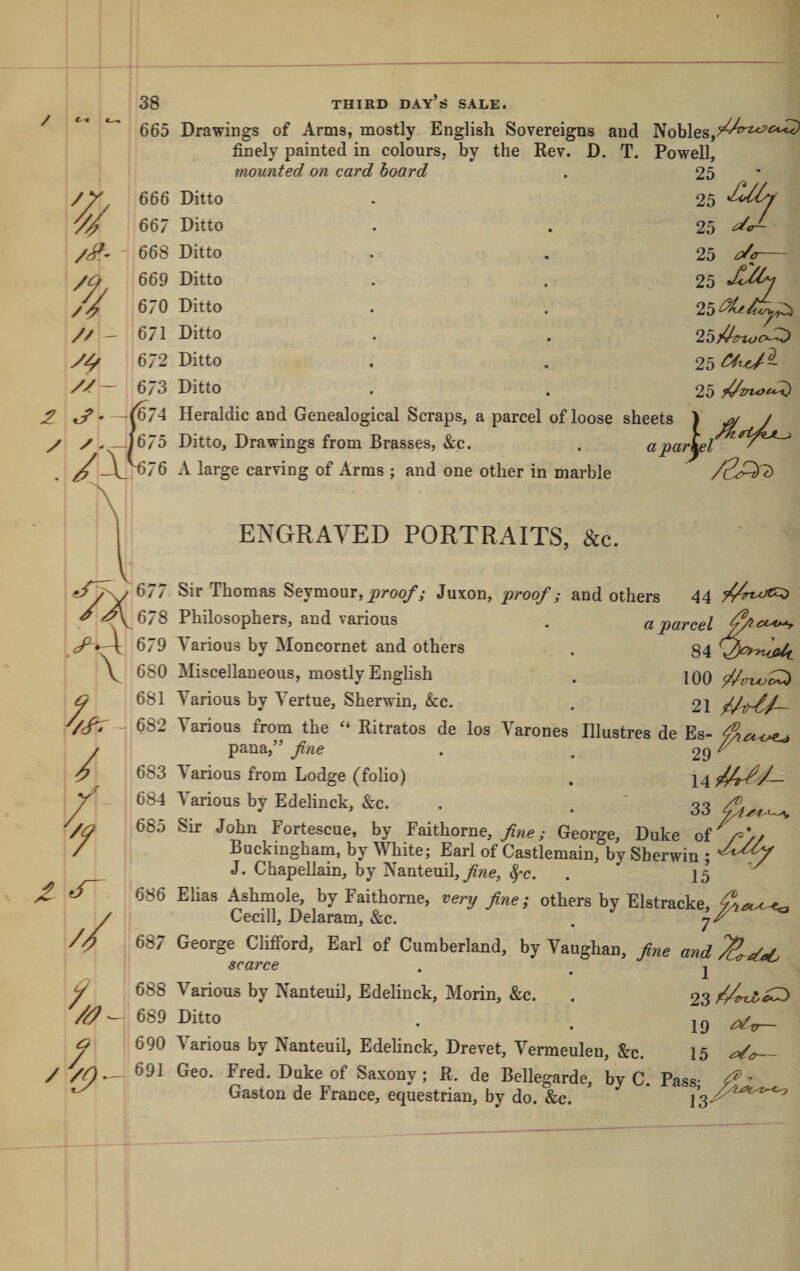 38 THIRD DAY'S SALE.
665 Drawings of Arms, mostly English Sovereigns and Nobles,
finely painted in colours, by the Rev. D. T. Powell,
mounted on card board . 25
666 Ditto . 25 Lilly
667 Ditto . . 25 do
668 Ditto . . 25 do
669 Ditto . . 25 Lilly
670 Ditto . . 25
671 Ditto . . 25
672 Ditto . . 25
673 Ditto . . 25
674 Heraldic and Genealogical Scraps, a parcel of loose sheets
675 Ditto, Drawings from Brasses, &c. . a parcel
676 A large carving of Arms ; and one other in marble
ENGRAVED PORTRAITS, &c.
677 Sir Thomas Seymour, proof; Juxon, proof; and others 44
678 Philosophers, and various . a parcel
679 Various by Moncornet and others . 84
680 Miscellaneous, mostly English . 100
681 Various by Vertue, Sherwin, &c. . 21
682 Various from the “ Ritratos de los Varones Illustres de Es-
pana,” fine . . 29
683 Various from Lodge (folio) . 14
684 Various by Edelinck, &c. . . 33
685 Sir John Fortescue, by Faithorne, fine; George, Duke of
Buckingham, by White; Earl of Castlemain, by Sherwin ; Lilly
J. Chapellain, by Nanteuil, fine, &c. . 15
686 Elias Ashmole, by Faithorne, very fine; others by Elstracke,
Cecill, Delaram, &c. . 7
687 George Clifford, Earl of Cumberland, by Vaughan, fine and
scarce . . 1
688 Various by Nanteuil, Edelinck, Morin, &c. . 23
689 Ditto . . 19 do
690 Various by Nanteuil, Edelinck, Drevet, Vermeulen, &c. 15 do
691 Geo. Fred. Duke of Saxony ; R. de Bellegarde, by C. Pass;
Gaston de France, equestrian, by do. &c. 13